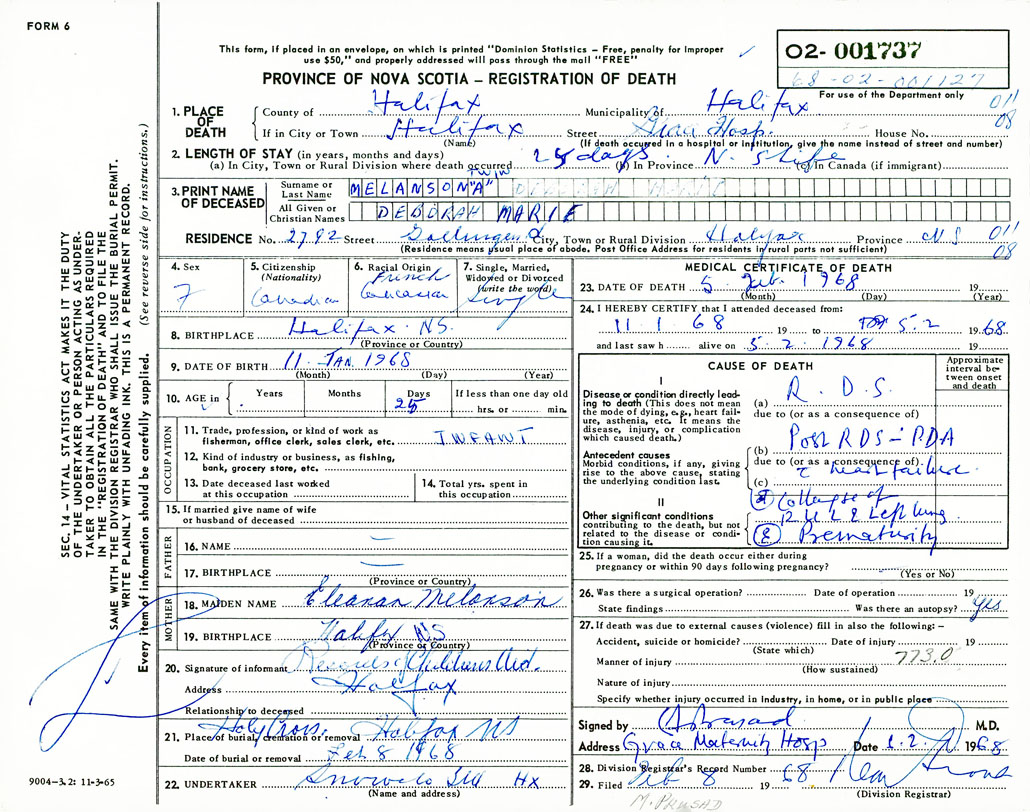 FORM 6
This form, if placed in an envelope, on which is printed "Dominion Statistics – Free, penalty for improper
use $50," and properly addressed will pass through the mail "FREE"
PROVINCE OF NOVA SCOTIA – REGISTRATION OF DEATH
O2- 001737
68-02-001127
For use of the Department only
1. PLACE OF DEATH
County of Halifax Municipality of Halifax
011
08
If in City or Town Halifax Street Grace Hosp. House No.
(Name) (If death occurred in a hospital or institution, give the name instead of street and number)
2. LENGTH OF STAY (in years, months and days)
(a) In City, Town or Rural Division where death occurred 25 days (b) In Province N.S. life (c) In Canada (if immigrant)
3. PRINT NAME OF DECEASED
Surname or Last Name MELANSON TWIN "A"
All Given or Christian Names DEBORAH MARIE
RESIDENCE No. 2792 Street City, Town or Rural Division Halifax Province NS
011
08
(Residence means usual place of abode. Post Office Address for residents in rural parts not sufficient)
4. Sex F
5. Citizenship (Nationality) Canadian
6. Racial Origin French Caucasian
7. Single, Married, Widowed or Divorced (write the word) Single
8. BIRTHPLACE Halifax. NS.
(Province or Country)
9. DATE OF BIRTH 11. JAN. 1968
(Month) (Day) (Year)
10. AGE in Years Months Days 25 If less than one day old hrs. or min.
OCCUPATION
11. Trade, profession, or kind of work as fisherman, office clerk, sales clerk, etc. INFANT
12. Kind of industry or business, as fishing, bank, grocery store, etc.
13. Date deceased last worked at this occupation
14. Total yrs. spent in this occupation
15. If married give name of wife or husband of deceased
FATHER
16. NAME —
17. BIRTHPLACE —
(Province or Country)
MOTHER
18. MAIDEN NAME Eleanan Melanson
19. BIRTHPLACE Halifax NS
(Province or Country)
20. Signature of informant Records of Childrens Aid.
Address Halifax
Relationship to deceased
21. Place of burial, cremation or removal Holy Cross. Halifax NS
Date of burial or removal Feb 8 1968
22. UNDERTAKER Snows Ltd Hx
(Name and address)
MEDICAL CERTIFICATE OF DEATH
23. DATE OF DEATH 5 Feb. 1968 19
(Month) (Day) (Year)
24. I HEREBY CERTIFY that I attended deceased from:
11.1.68 19 to 5.2 19 68
and last saw h alive on 5.2.1968 19
CAUSE OF DEATH
Approximate interval between onset and death
I
Disease or condition directly leading to death (This does not mean the mode of dying, e.g., heart failure, asthenia, etc. It means the disease, injury, or complication which caused death.)
(a) R.D.S.
due to (or as a consequence of)
Antecedent causes
Morbid conditions, if any, giving rise to the above cause, stating the underlying condition last.
(b) Post RDS – PDA
due to (or as a consequence of)
(c) c heart failure
II
Other significant conditions contributing to the death, but not related to the disease or condition causing it.
Collapse of
RUL & Left lung
Prematurity
25. If a woman, did the death occur either during pregnancy or within 90 days following pregnancy?
(Yes or No)
26. Was there a surgical operation? Date of operation 19
State findings Was there an autopsy? Yes
27. If death was due to external causes (violence) fill in also the following: –
Accident, suicide or homicide? Date of injury 19
(State which)
Manner of injury 773.0
(How sustained)
Nature of injury
Specify whether injury occurred in industry, in home, or in public place
Signed by A Prasad M.D.
Address Grace Maternity Hosp Date 1968
28. Division Registrar's Record Number 68
29. Filed Feb 8 19
(Division Registrar)
M. PRASAD
SEC. 14 – VITAL STATISTICS ACT MAKES IT THE DUTY
OF THE UNDERTAKER OR PERSON ACTING AS UNDER-
TAKER TO OBTAIN ALL THE PARTICULARS REQUIRED
IN THE "REGISTRATION OF DEATH" AND TO FILE THE
SAME WITH THE DIVISION REGISTRAR WHO SHALL ISSUE THE BURIAL PERMIT.
WRITE PLAINLY WITH UNFADING INK. THIS IS A PERMANENT RECORD.
Every item of information should be carefully supplied. (See reverse side for instructions.)
9004–3.2: 11-3-65